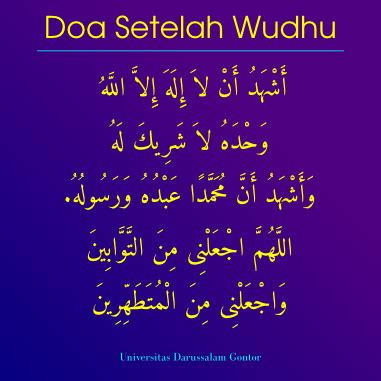 Doa Setelah Wudhu
أَشْهَدُ أَنْ لاَ إِلَهَ إِلاَّ اللَّهُ
وَحْدَهُ لاَ شَرِيكَ لَهُ
وَأَشْهَدُ أَنَّ مُحَمَّدًا عَبْدُهُ وَرَسُولُهُ.
اللَّهُمَّ اجْعَلْنِى مِنَ التَّوَّابِينَ
وَاجْعَلْنِى مِنَ الْمُتَطَهِّرِينَ
Universitas Darussalam Gontor